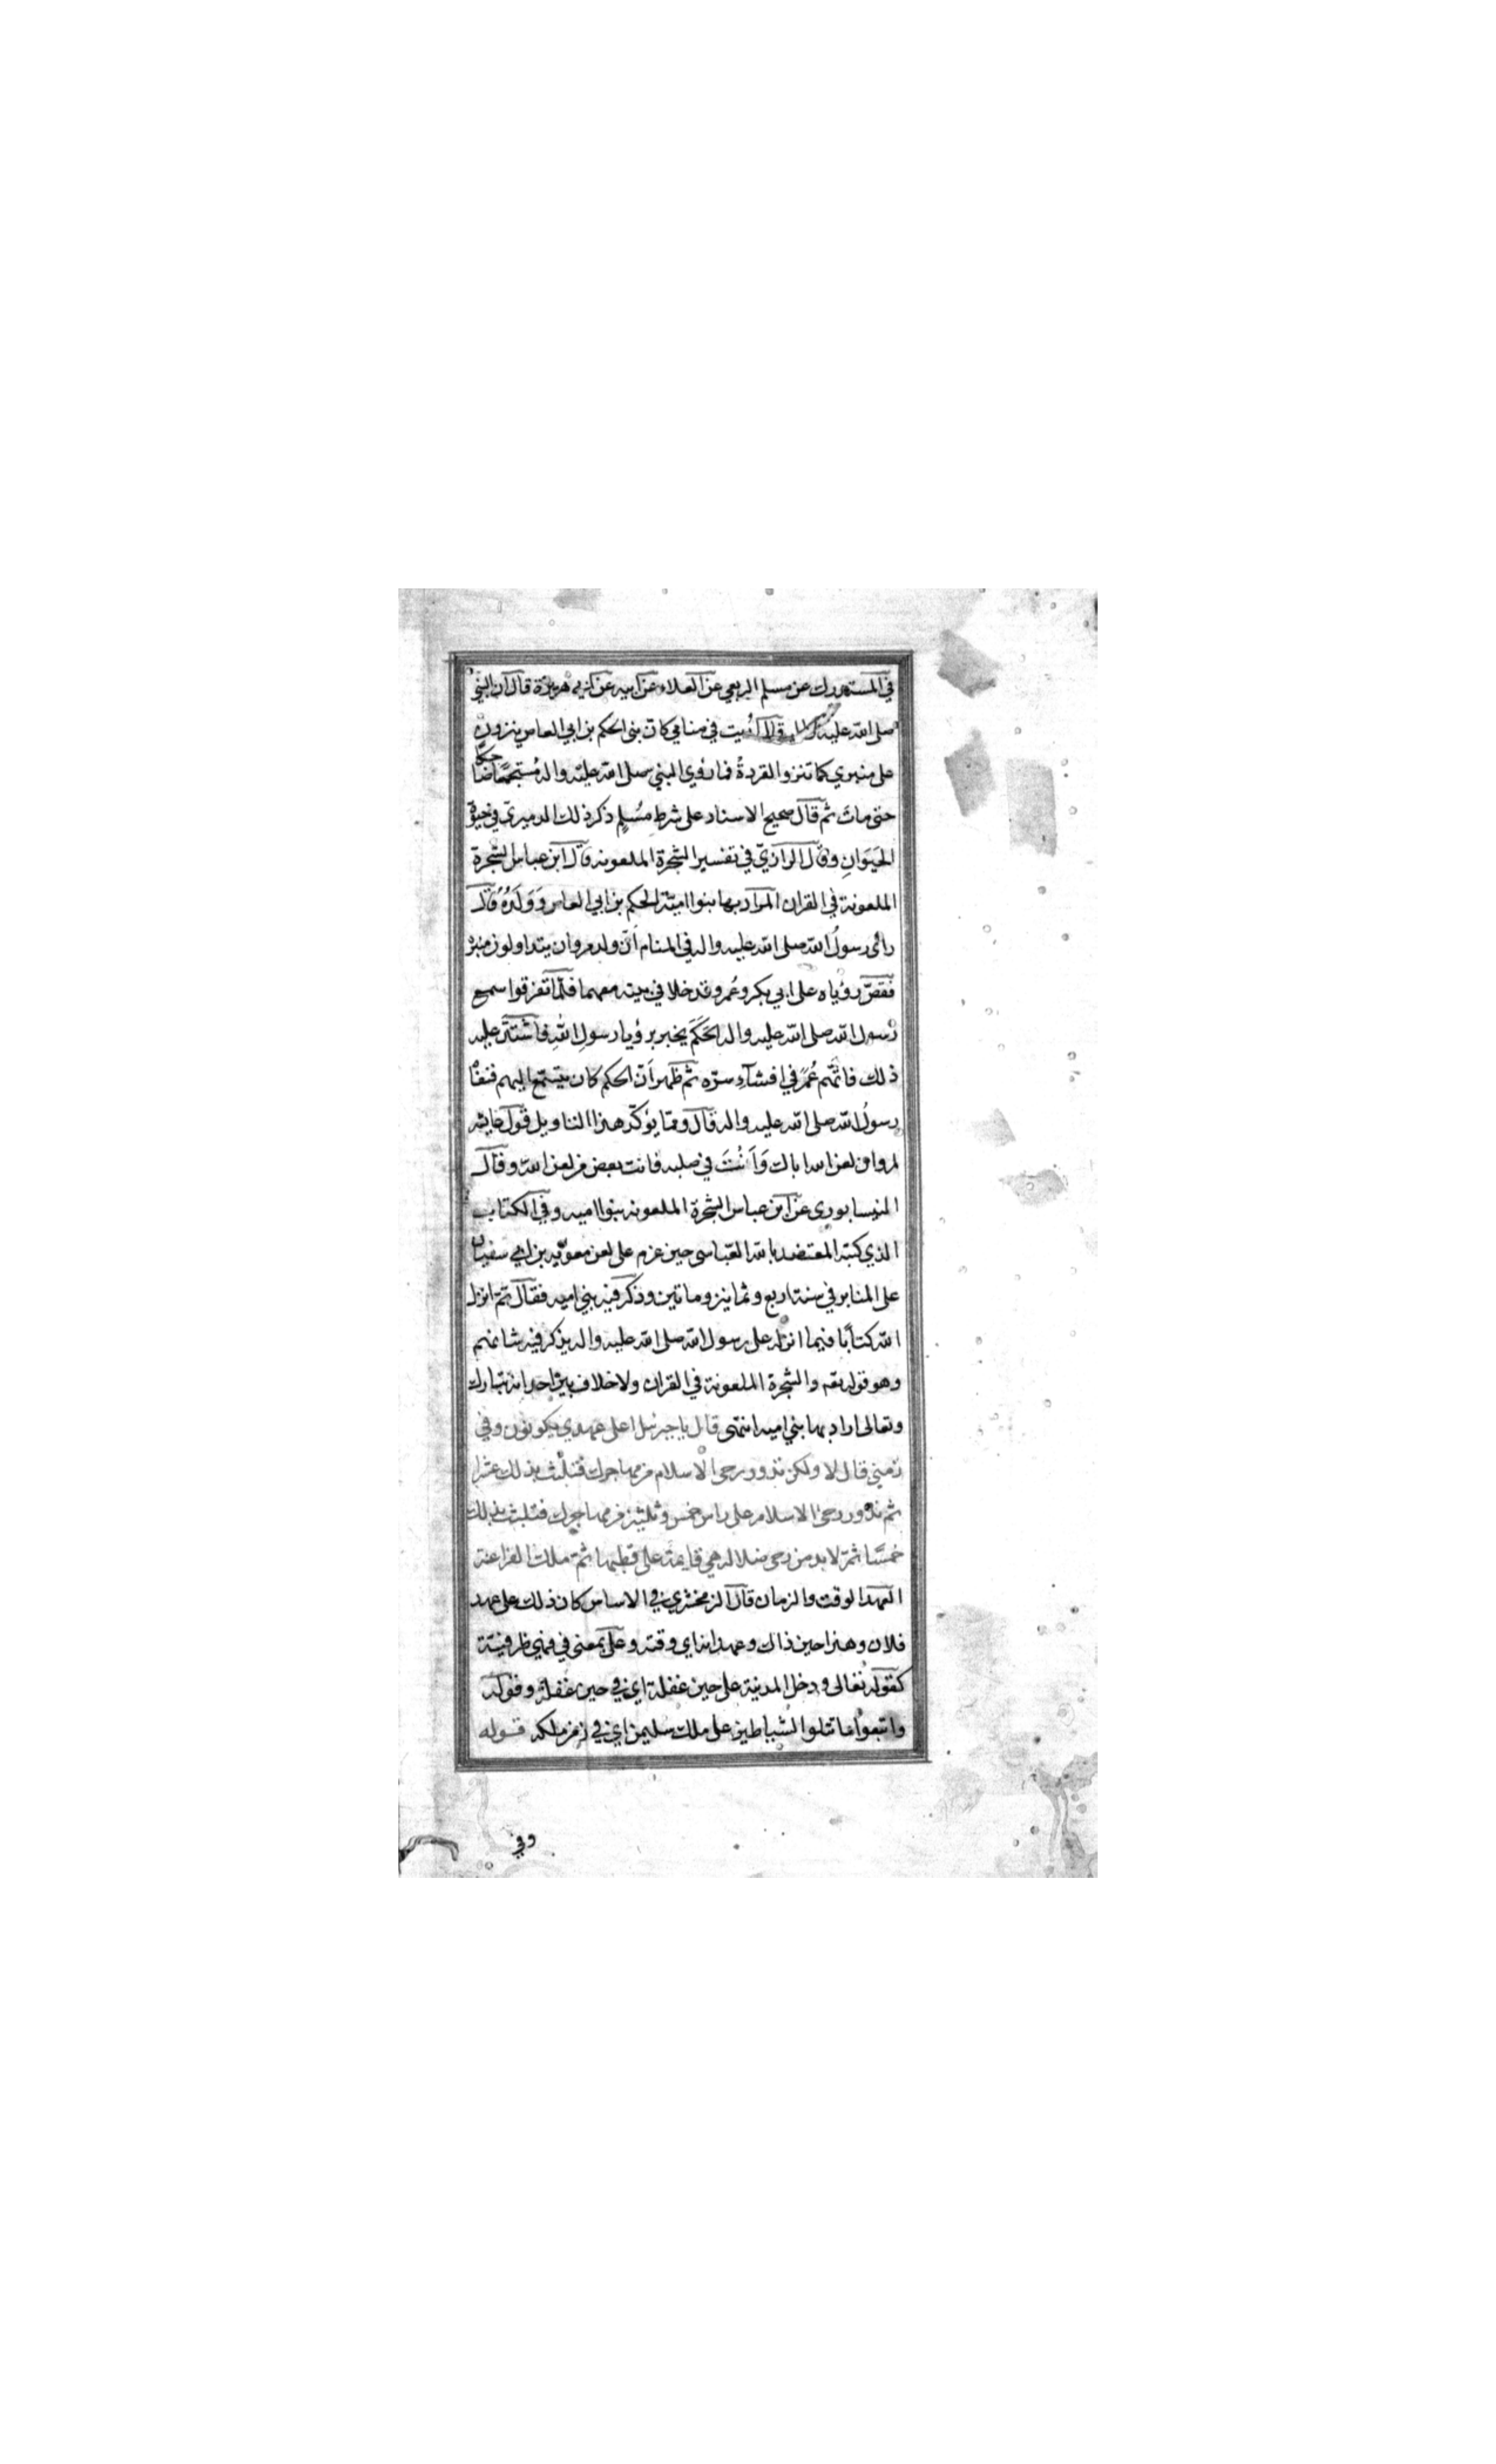 في المستدرك عن مسلم الربعي عن العلاء عن ابيه عن ابي هريرة قال ان النبي
صلى الله عليه قال اريت في منامي كان بني الحكم بن ابي العاص ينزون
على منبري كما تنزوا القردة فما رؤي النبي صلى الله عليه واله مستجمعا ضاحكا
حتى مات ثم قال صحيح الاسناد على شرط مسلم ذكر ذلك الدميري في حيوة
الحيوان وقال الرازي في تفسير الشجرة الملعونة قال ابن عباس الشجرة
الملعونة في القران المراد بها بنوا امية الحكم بن ابي العاص وولده قال
رائى رسول الله صلى الله عليه واله في المنام ان ولد مروان يتداولون منبره
فقص رؤياه على ابي بكر وعمر وقد خلا في بيته معهما فلما تفرقوا سمع
رسول الله صلى الله عليه واله الحكم يخبر برؤيا رسول الله فاشتد عليه
ذلك فاتهم عمر في افشاء سره ثم ظهر ان الحكم كان يتسمع اليهم فنفاه
رسول الله صلى الله عليه واله قال ومما يؤكد هذا التاويل قول عايشه
لمروان لعن الله اباك وانت في صلبه فانت بعض من لعن الله وقال
النيسابوري عن ابن عباس الشجرة الملعونه بنوا اميه وفي الكتاب
الذي كتبه المعتضد بالله العباسي حين عزم على لعن معويه بن ابي سفيان
على المنابر في سنة اربع وثمانين وماتين وذكر فيه بني اميه فقال ثم انزل
الله كتابا فيما انزله على رسول الله صلى الله عليه واله يذكر فيه شانهم
وهو قوله تعه والشجرة الملعونة في القران ولا خلاف بين احد انه تبارك
وتعالى اراد بها بني اميه انتهى قال يا جبرئيل اعلى عهدي يكونون وفي
زمني قال لا ولكن تدور رحى الاسلام من مهاجرك فتلبث بذلك عشرا
ثم تدور رحى الاسلام على راس خمس وثلثين من مهاجرك فتلبث بذلك
خمسا ثم لا بد من رحى ضلالة هي قايمة على قطبها ثم ملك الفراعنة
العهد الوقت والزمان قال الزمخشري في الاساس كان ذلك على عهد
فلان وهذا حين ذاك وعهدانه اي وقته وعلى بمعنى في فهي ظرفية
كقوله تعالى ودخل المدينة على حين غفلة اي في حين غفلة وقوله
واتبعوا ما تتلوا الشياطين على ملك سليمن اي في زمن ملكه قوله
وفي